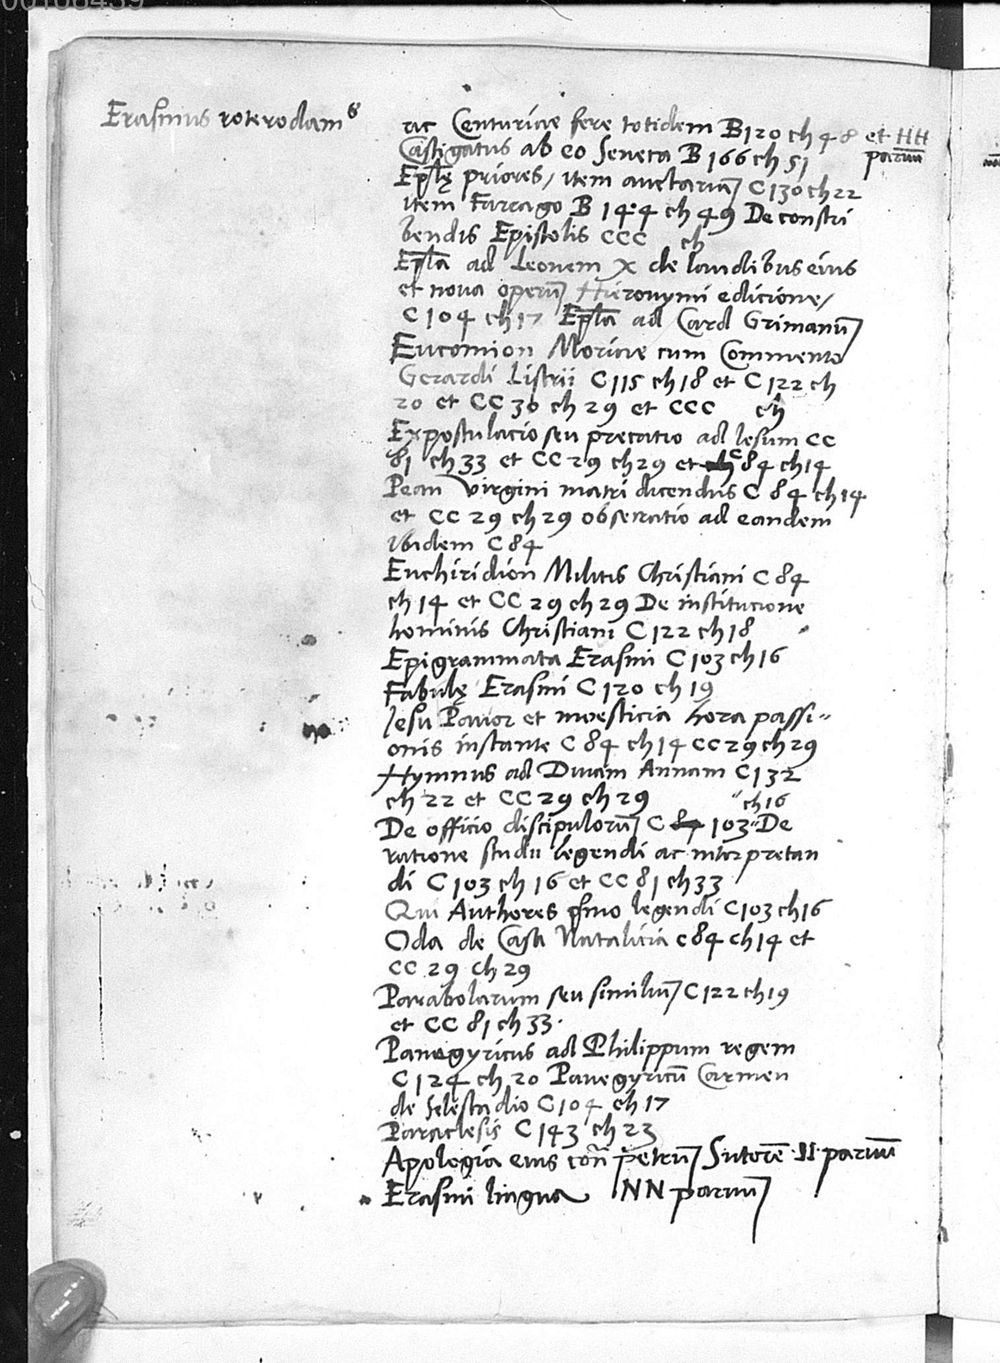 00108439
Erasmus roterodamꝰ
ric Centuriae fere totidem B120 ch 48 et HH parum̄
Castigatus ab eo Seneca B 166 ch 51
Ep̄lę priores, item auctariū C130 ch 22
item Farrago B 144 ch 49 De constri
bendis Epistolis CCC ch
Ep̄la ad Leonem X de laudibus eius
et nova operū Hieronymi edicione,
C 104 ch 17 Ep̄la ad Card Grimanū
Encomion Moriae cum Commento
Gerardi Listrii C 115 ch 18 et C 122 ch
20 et CC 36 ch 29 et CCC ch
Expostulacio seu precatio ad Iesum CC
81 ch 33 et CC 29 ch 29 et C 84 ch 14
Pean Virgini matri dicendus C 84 ch 14
et CC 29 ch 29 obsecratio ad eandem
ibidem C 84
Enchiridion Militis Christiani C 84
ch 14 et CC 29 ch 29 De institucione
hominis Christiani C 122 ch 18
Epigrammata Erasmi C 103 ch 16
Fabulę Erasmi C 120 ch 19
Iesu Pavor et moesticia hora passi-
onis instante C 84 ch 14 CC 29 ch 29
Hymnus ad Divam Annam C 132
ch 22 et CC 29 ch 29
De officio discipulorū C 103 ch 16 De
ratione studii legendi ac interpretan
di C 103 ch 16 et CC 81 ch 33
Qui Authores p̄mo legendi C 103 ch 16
Oda de Casa Natalicia C 84 ch 14 et
CC 29 ch 29
Parabolarum seu similiū C 122 ch 19
et CC 81 ch 33.
Panegyricus ad Philippum regem
C 124 ch 20 Panegyricū Carmen
de Selestadio C 104 ch 17
Paraclesis C 143 ch 23
Apologia eius con̄ petrū Sutorē II parvū
Erasmi lingua NN parvū